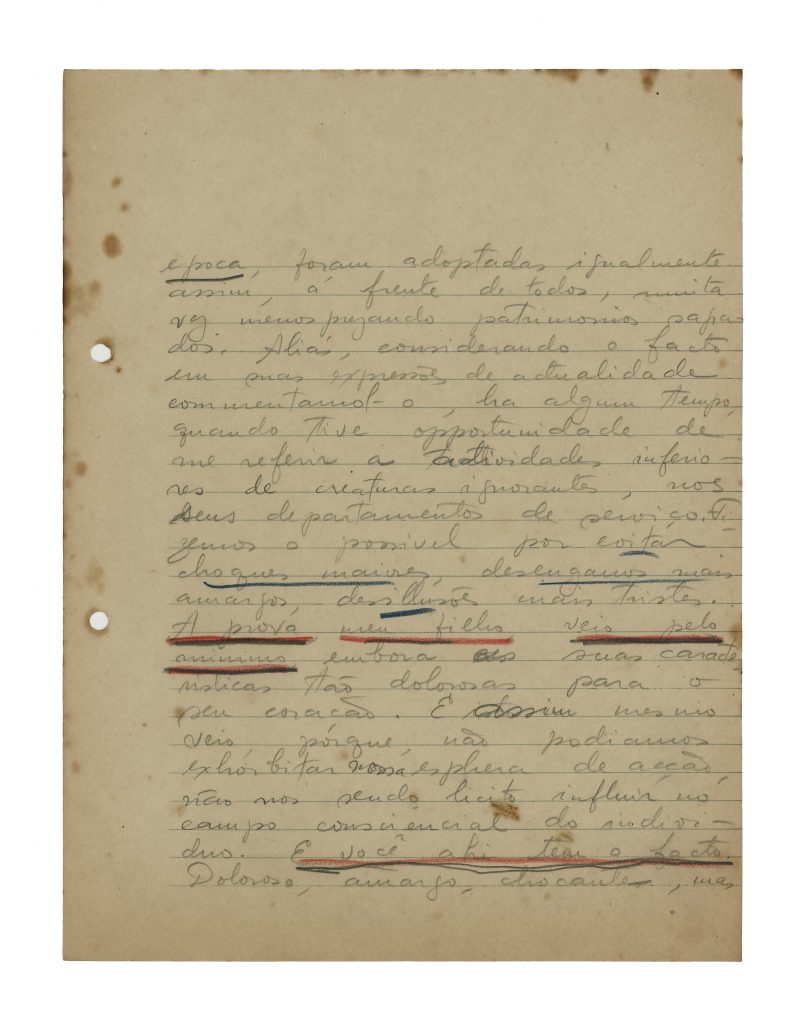 epoca, foram adoptadas igualmente
assim, á frente de todos, muita
vez menosprezando patrimonios sagra
dos. Aliás, considerando o facto
em suas expressões de actualidade
commentamol-o, ha algum tempo,
quando tive opportunidade de
me referir a actividades inferio-
res de creaturas ignorantes, nos
seus departamentos de serviço. Fi-
zemos o possivel por evitar
choques maiores, desenganos mais
amargos, desillusões mais tristes.
A prova meu filho veio pelo
minimo embora as suas caracte
risticas tão dolorosas para o
seu coração. E assim mesmo
veio, pórque, não podiamos
exhorbitar nossa esphera de acção,
não nos sendo licito influir no
campo consciencial do indivi-
duo. E você ahi tem o facto.
Doloroso, amargo, chocante, mas